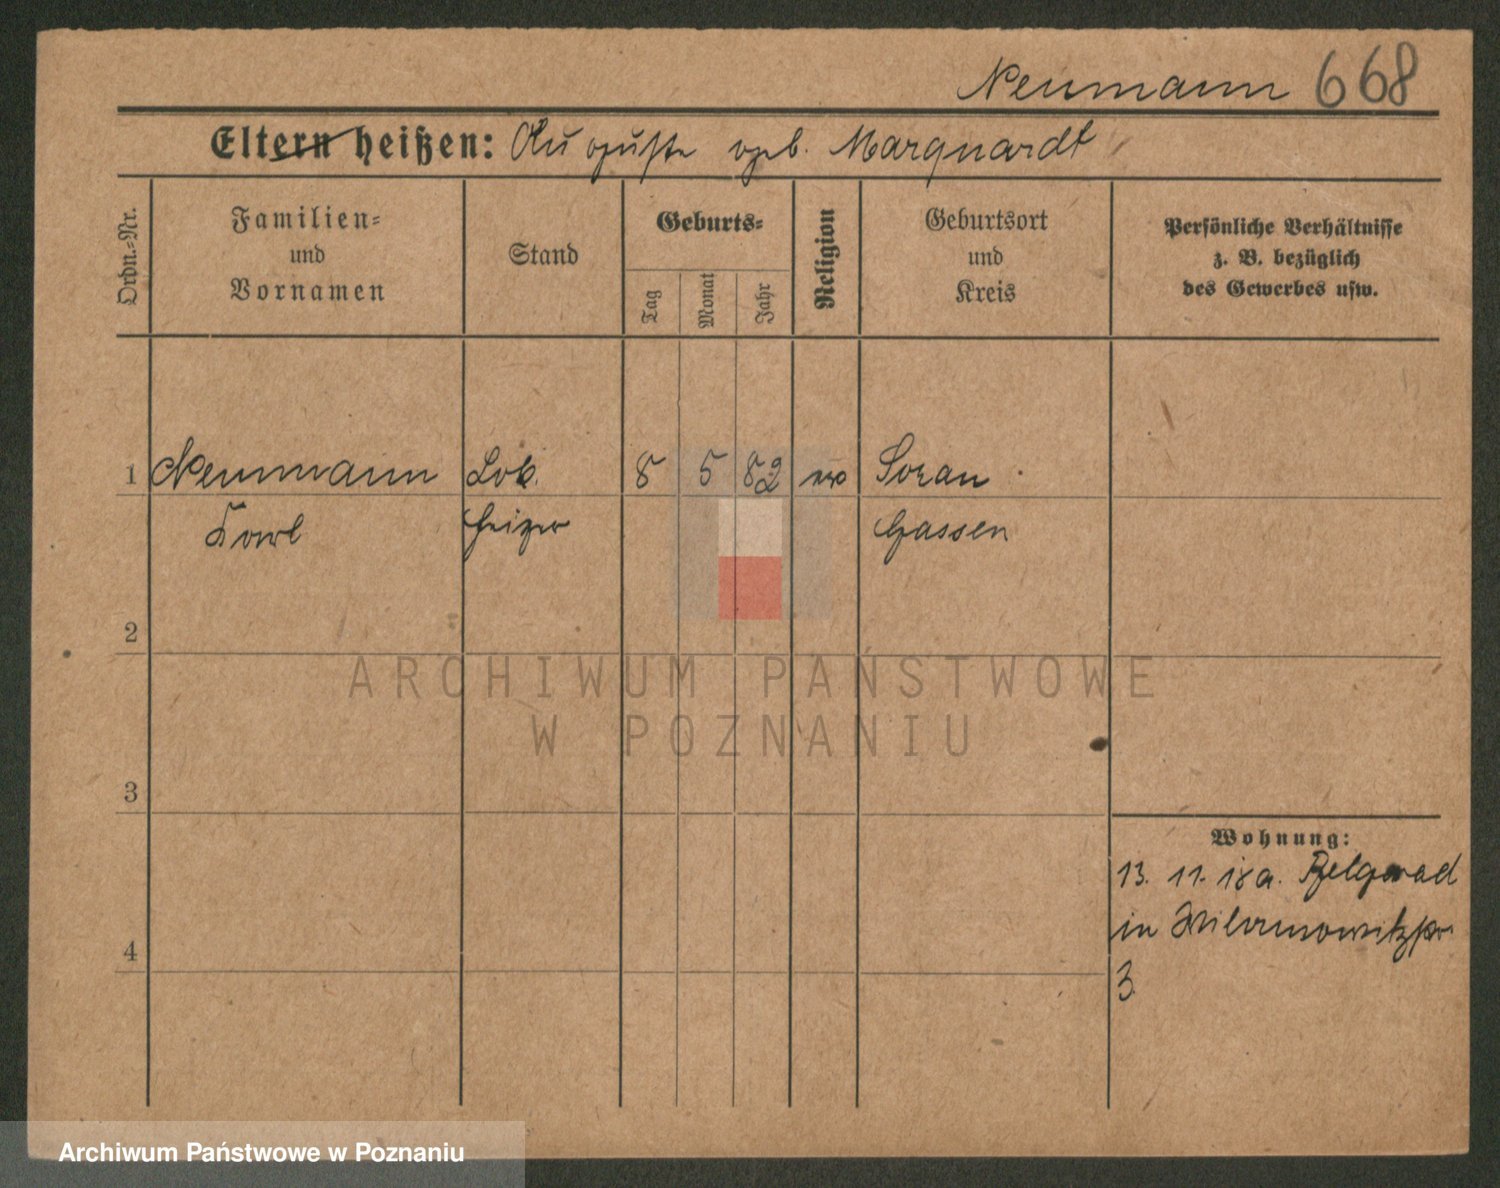 Neumann 668
Eltern heißen: Auguste geb. Marquardt
Ordn.-Nr.
Familien-
und
Vornamen
Stand
Geburts-
Tag
Monat
Jahr
Religion
Geburtsort
und
Kreis
Persönliche Verhältnisse
z. B. bezüglich
des Gewerbes usw.
1 Neumann Lok. 8 5 82 ev Sorau
Karl Heizer Gassen
2
ARCHIWUM PAŃSTWOWE
W POZNANIU
3
Wohnung:
13. 11. 18 a. Belgrad
in
4
3
Archiwum Państwowe w Poznaniu